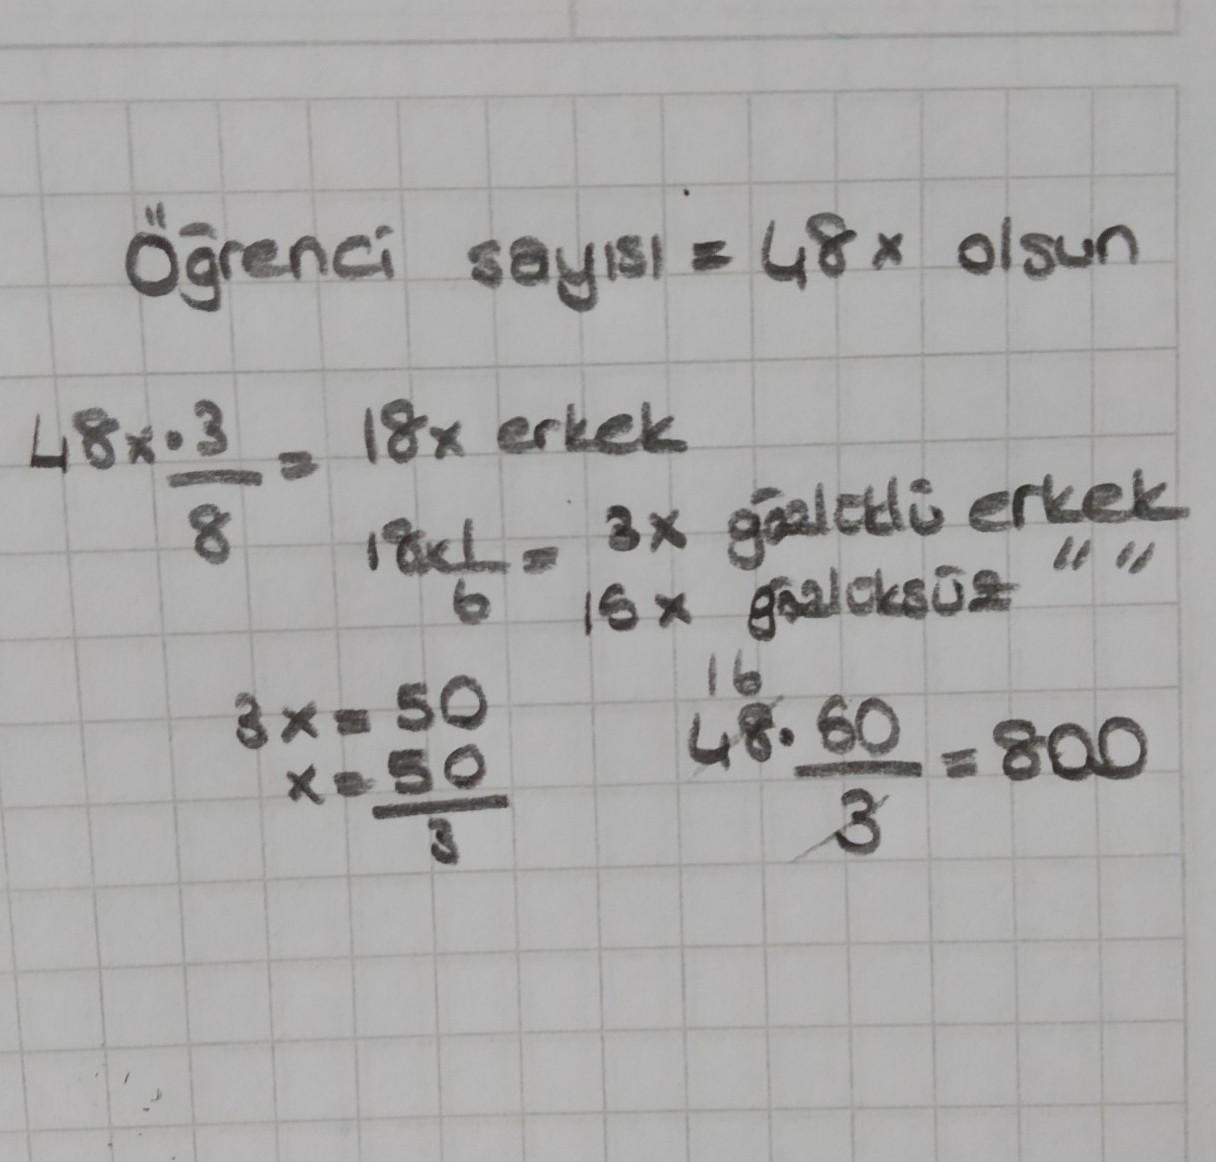 Öğrenci sayısı = 48x olsun
48x · 3/8 = 18x erkek
18x · 1/6 = 3x gözlüklü erkek
15x gözlüksüz " "
3x = 50
x = 50/3
16
48 · 50/3 = 800